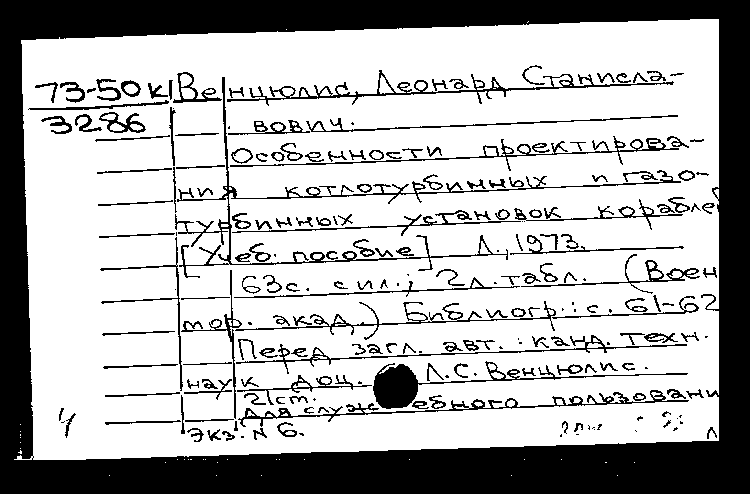 73-50к Венцюлис, Леонард Станисла-
3286 вович.
Особенности проектирова-
ния котлотурбинных и газо-
турбинных установок корабле
[Учеб. пособие] Л., 1973.
63с. с ил.; 2л. табл. (Воен
мор. акад.) Библиогр.: с. 61-62
Перед загл. авт.: канд. техн.
наук доц. Л.С. Венцюлис.
21см.
Для служебного пользовани
Экз. N 6.